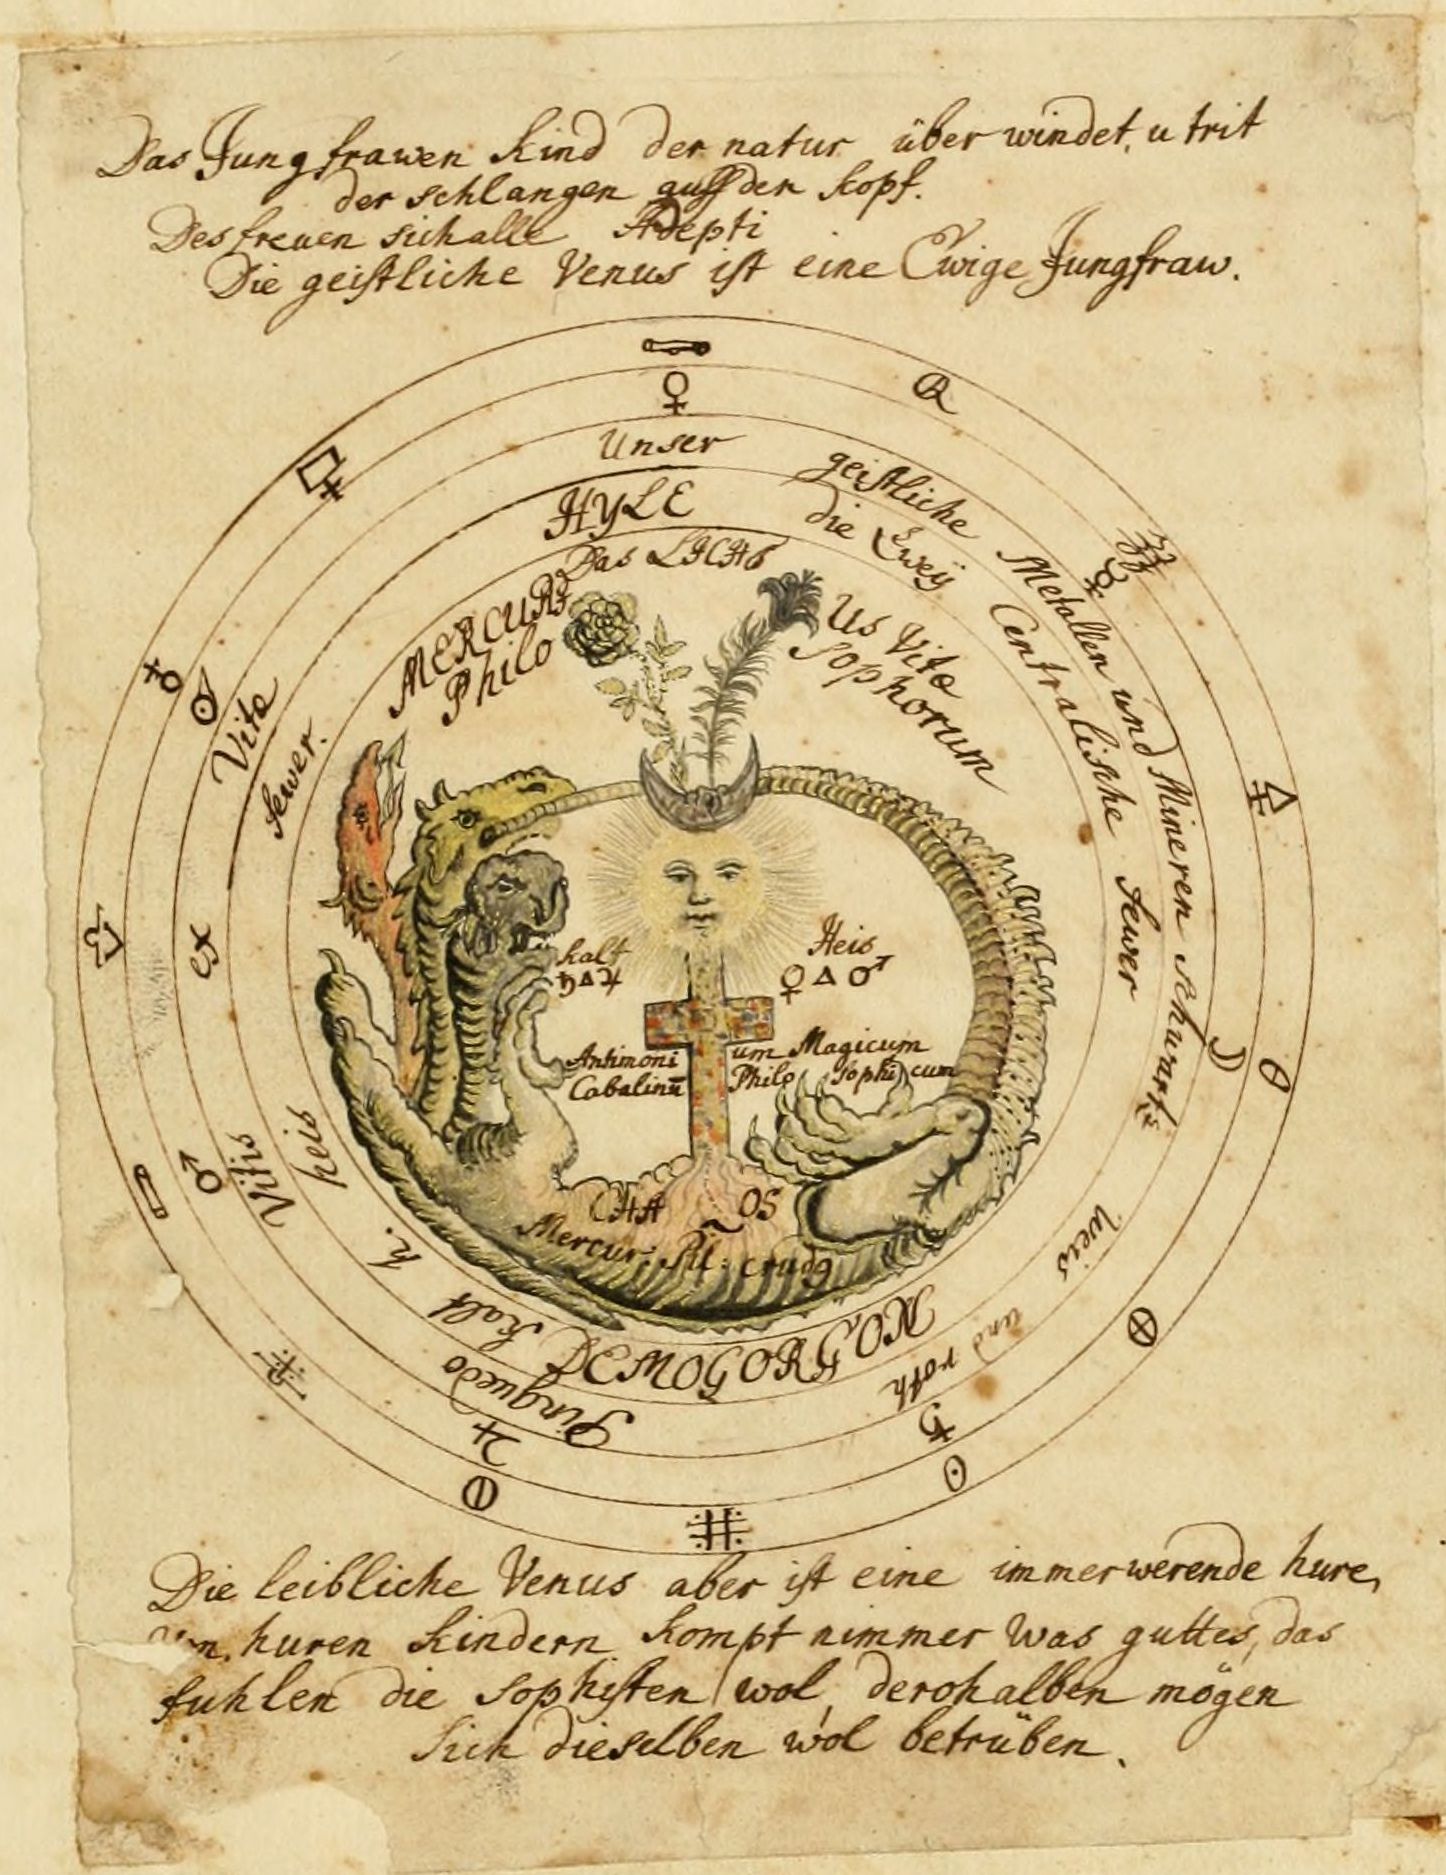 Das Jungfrawen Kind der natur überwindet, u trit
der schlangen auff den kopf.
Des freuen sich alle Adepti
Die geistliche Venus ist eine Ewige Jungfraw.
♀
Unser geistliche Metallen und Mineren schwartz
Weis und roth
HYLE die Zweÿ Centralische fewer
Das LICHT
MERCURI
US Vita
Philo
sophorum
Vita
fewer.
ex
♂
Vitis
heis
h.
kalt
♃
Pinguedo
♄
kalt
♄ △ ♃
Heis
♀ △ ♂
Antimoni um Magicum
Cabalinū Philo sophicum
CHA OS
Mercur: Sit: crud9
Die leibliche Venus aber ist eine immerwerende hure,
huren kindern kompt nimmer was guttes, das
fuhlen die sophisten wol, derohalben mögen
sich dieselben wol betrüben.